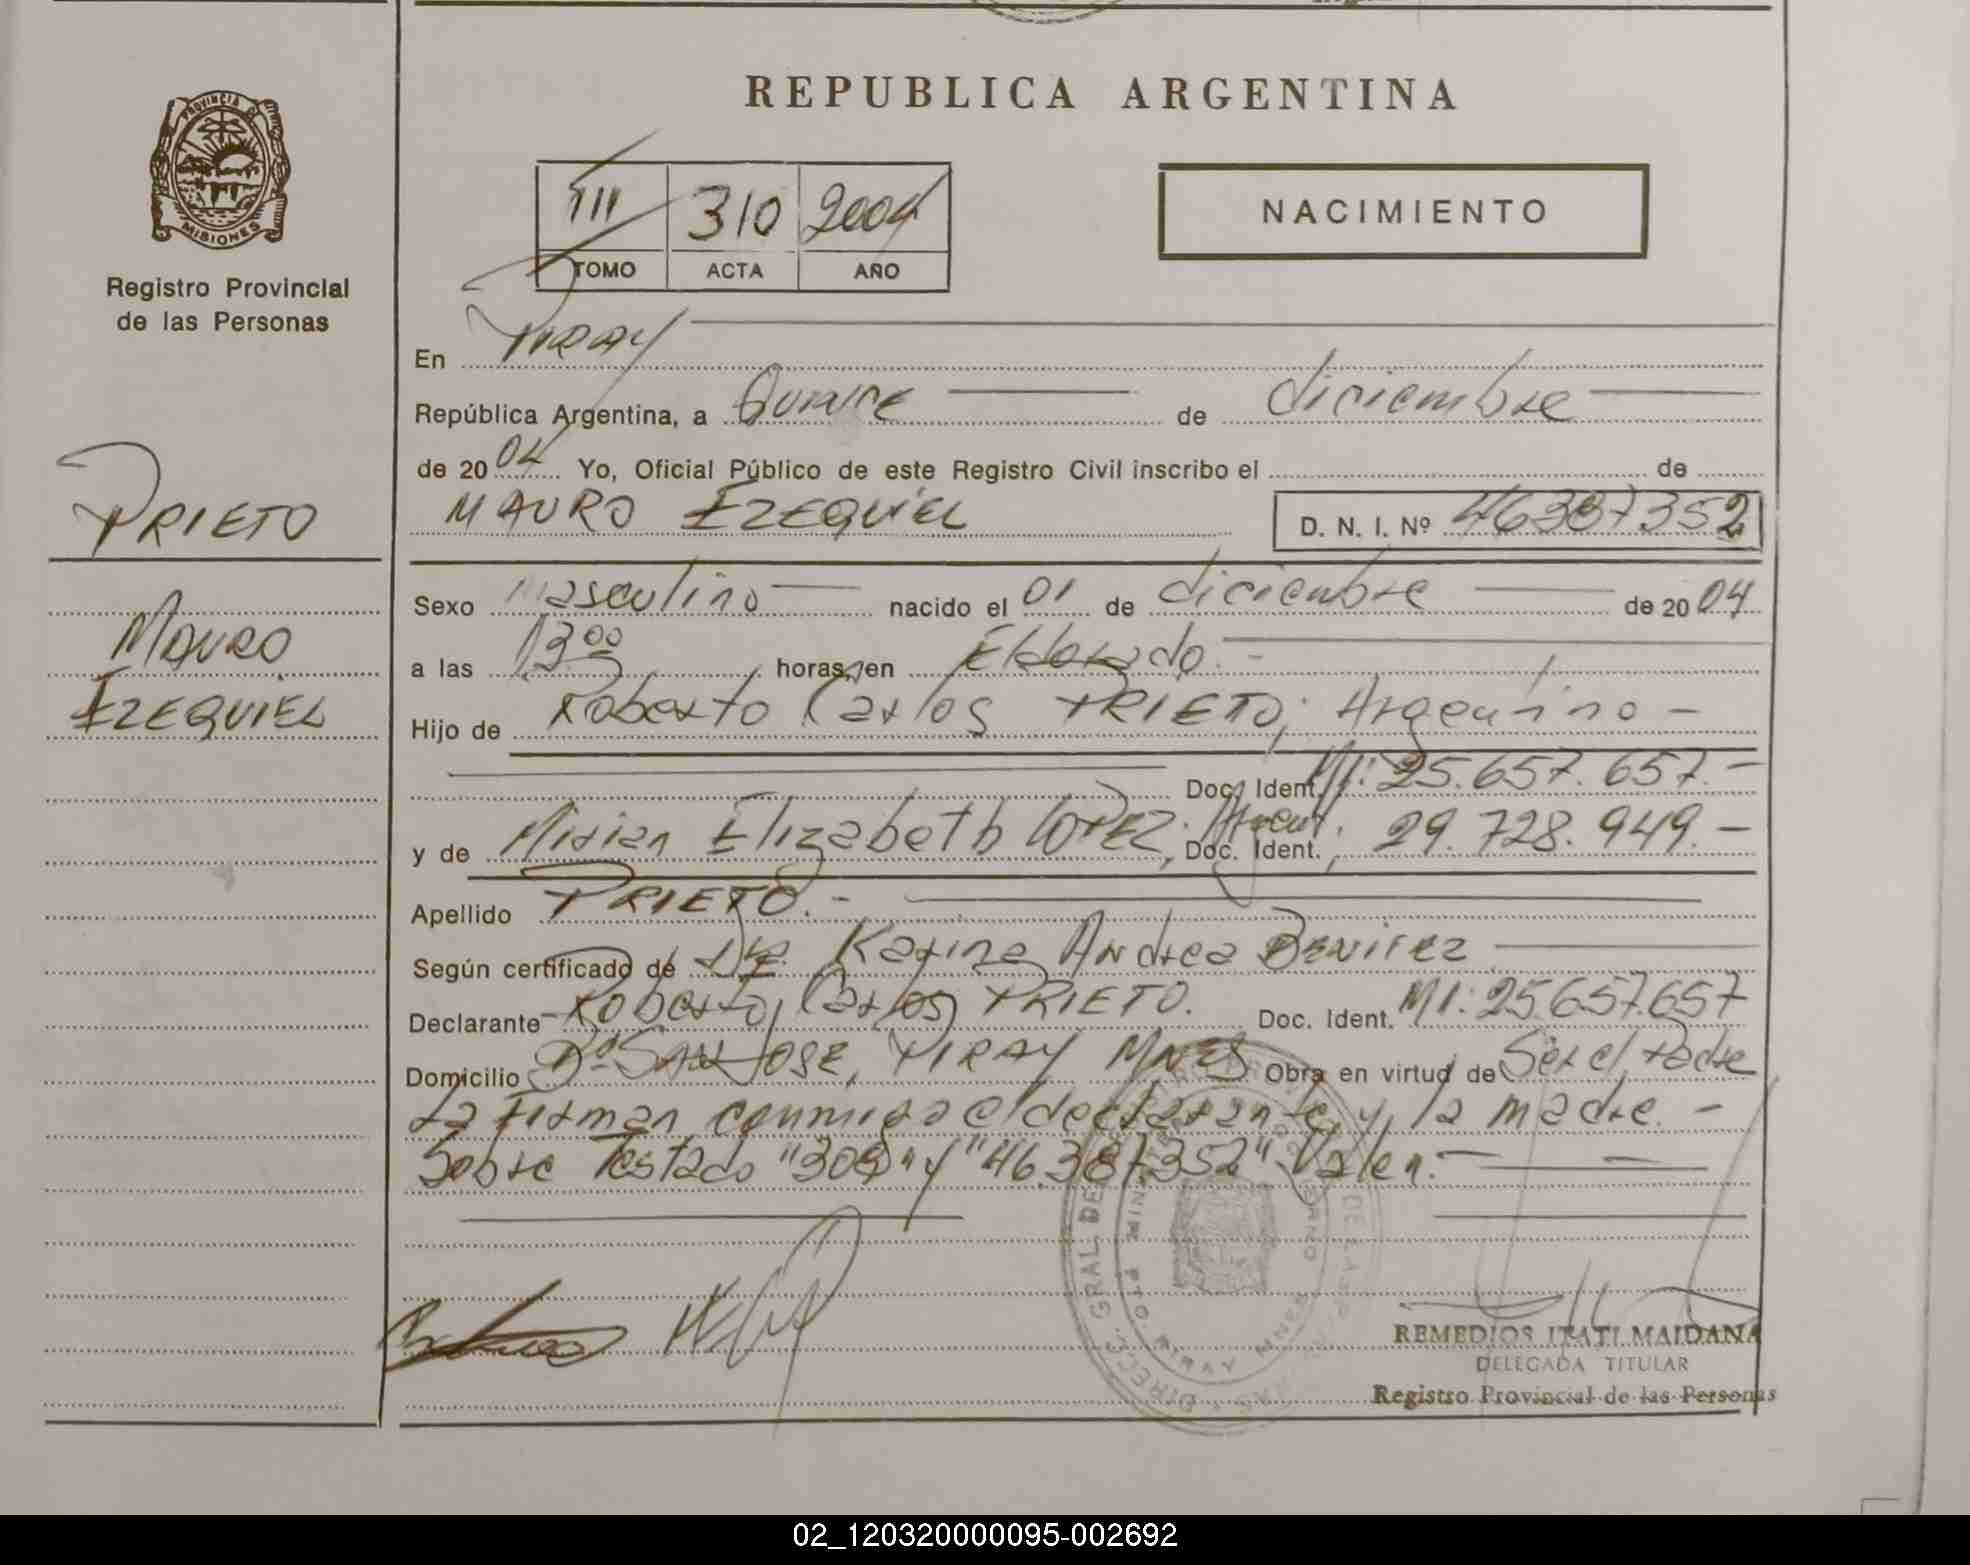 REPUBLICA ARGENTINA
PROVINCIA D
MISIONES
Registro Provincial
de las Personas
III 310 2004
TOMO ACTA AÑO
NACIMIENTO
En PIRAY
República Argentina, a Quince de diciembre
de 2004 Yo, Oficial Público de este Registro Civil inscribo el de
MAURO EZEQUIEL D. N. I. Nº 46387352
PRIETO
MAURO
EZEQUIEL
Sexo Masculino nacido el 01 de diciembre de 2004
a las 13 00 horas, en Eldorado.-
Hijo de Roberto Carlos PRIETO; Argentino -
Doc. Ident. MI: 25.657.657.-
y de Mirian Elizabeth LOPEZ; Argent. Doc. Ident., 29.728.949.-
Apellido PRIETO.-
Según certificado de Dra. Karina Andrea BENITEZ
Declarante Roberto Carlos PRIETO. Doc. Ident. MI: 25657.657
Domicilio Bº SAN JOSE, PIRAY MNES Obra en virtud de Ser el Padre
La Firman conmigo el declarante y la madre.-
Sobre Testado "309" y "46.387352" Valen.-
REMEDIOS ITATI MAIDANA
DELEGADA TITULAR
Registro Provincial de las Personas
DIREC. GRAL DE
PTO PIRAY MNES
02_120320000095-002692